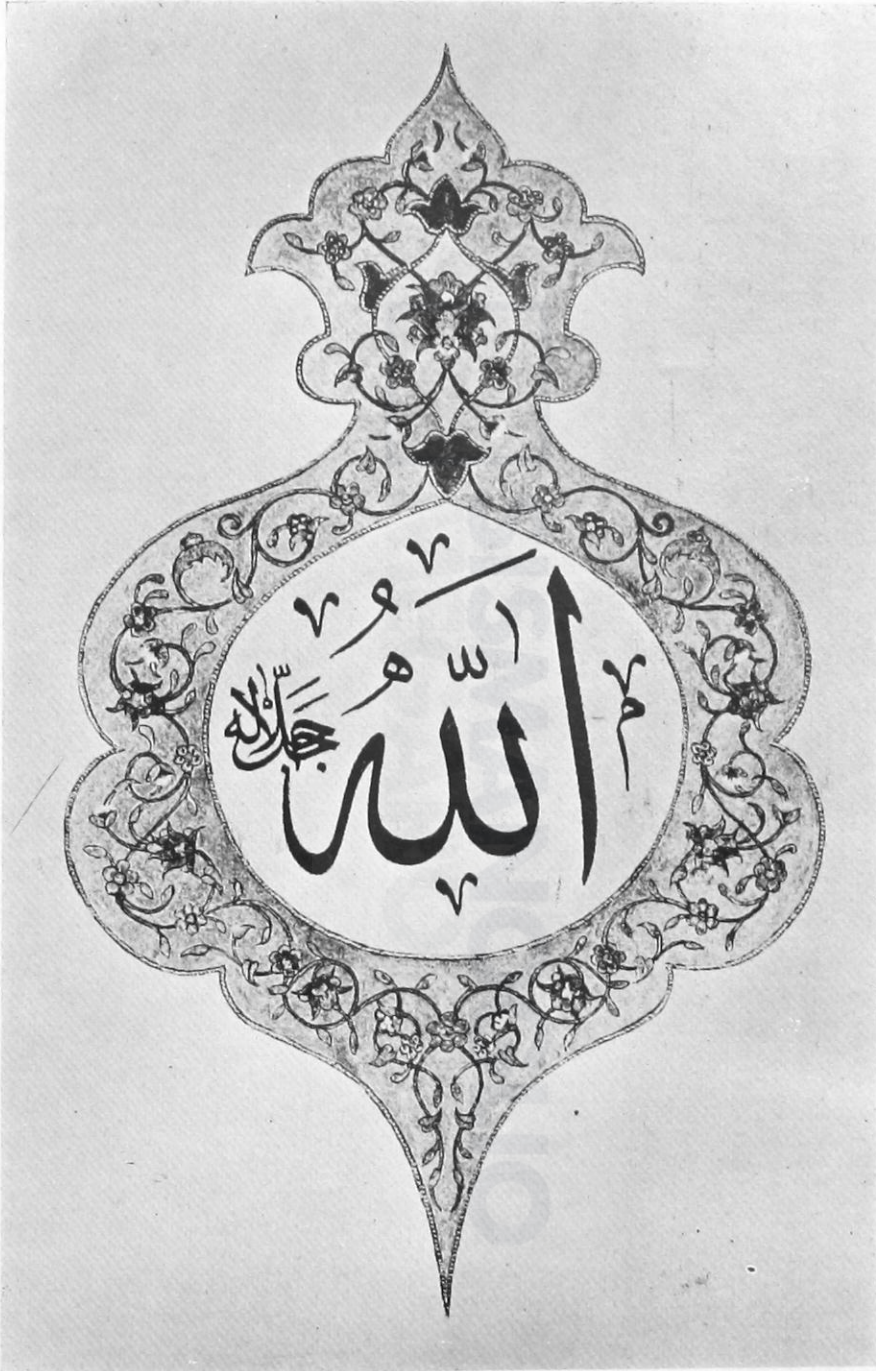 اللهُ
جل جلاله